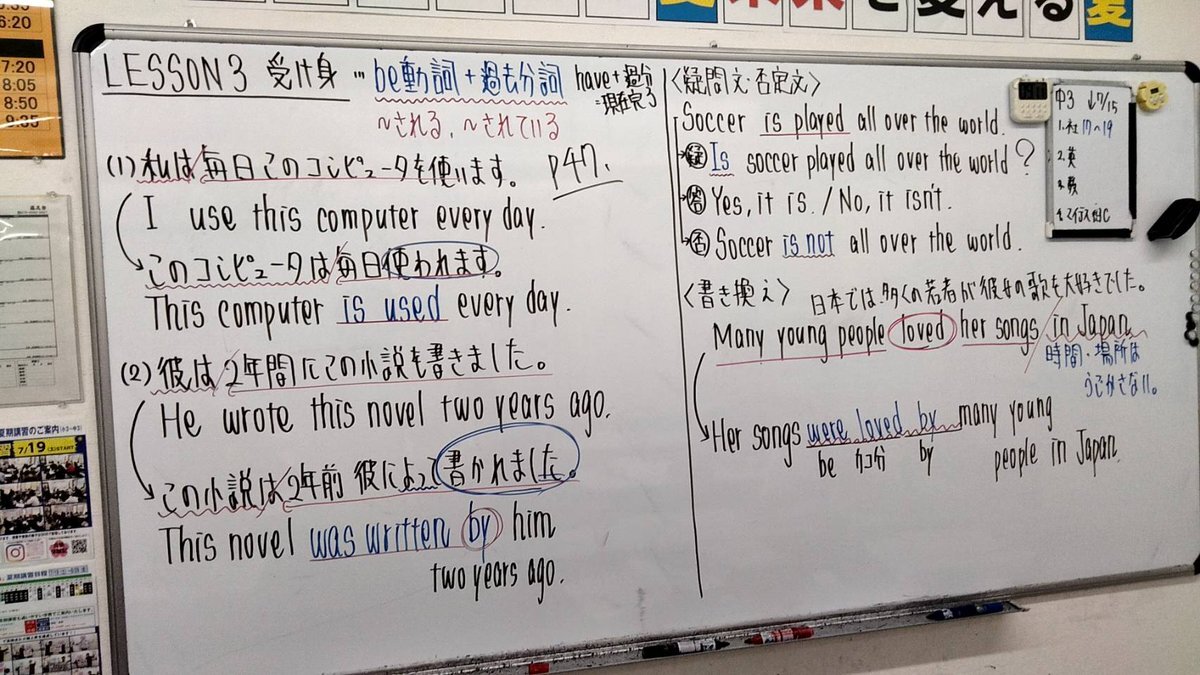 を変える夏
6:20
7:20
8:05
8:50
9:35
LESSON 3 受け身 … be動詞+過去分詞
have+過分
=現在完了
～される、～されている
(1) 私は毎日このコンピュータを使います。 P47.
I use this computer every day.
このコンピュータは毎日使われます。
This computer is used every day.
(2) 彼は2年間にこの小説を書きました。
He wrote this novel two years ago.
この小説は2年前彼によって書かれました。
This novel was written by him
two years ago.
〈疑問文・否定文〉
Soccer is played all over the world.
疑 Is soccer played all over the world?
答 Yes, it is. / No, it isn't.
否 Soccer is not all over the world.
〈書き換え〉 日本では多くの若者が彼女の歌を大好きでした。
Many young people loved her songs in Japan.
時間・場所は
うごかさない。
Her songs were loved by many young
people in Japan.
be カコ分 by
中3 ↓7/15
1. 社 17～19
2. 英
3. 数
夏期講習のご案内
7/19
START